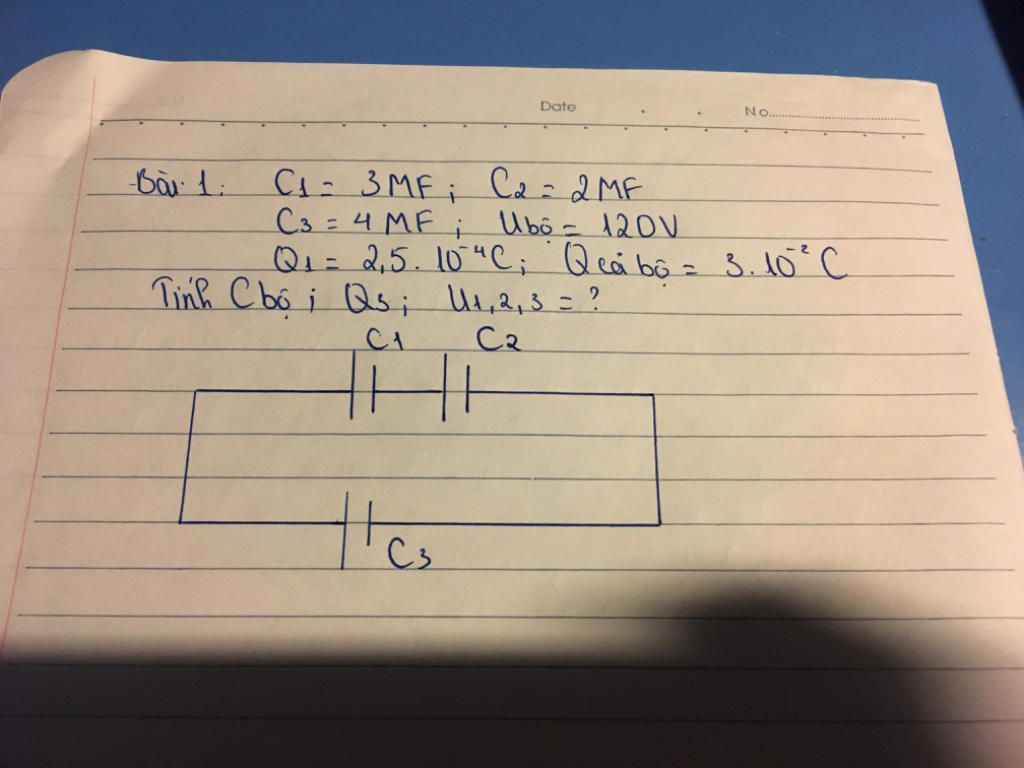 Date . . No.
Bài 1: C1 = 3MF; C2 = 2MF
C3 = 4MF; Ubộ = 120V
Q1 = 2,5.10⁻⁴C; Qcả bộ = 3.10⁻²C
Tính Cbộ; Q3; U1,2,3 = ?
C1 C2
C3